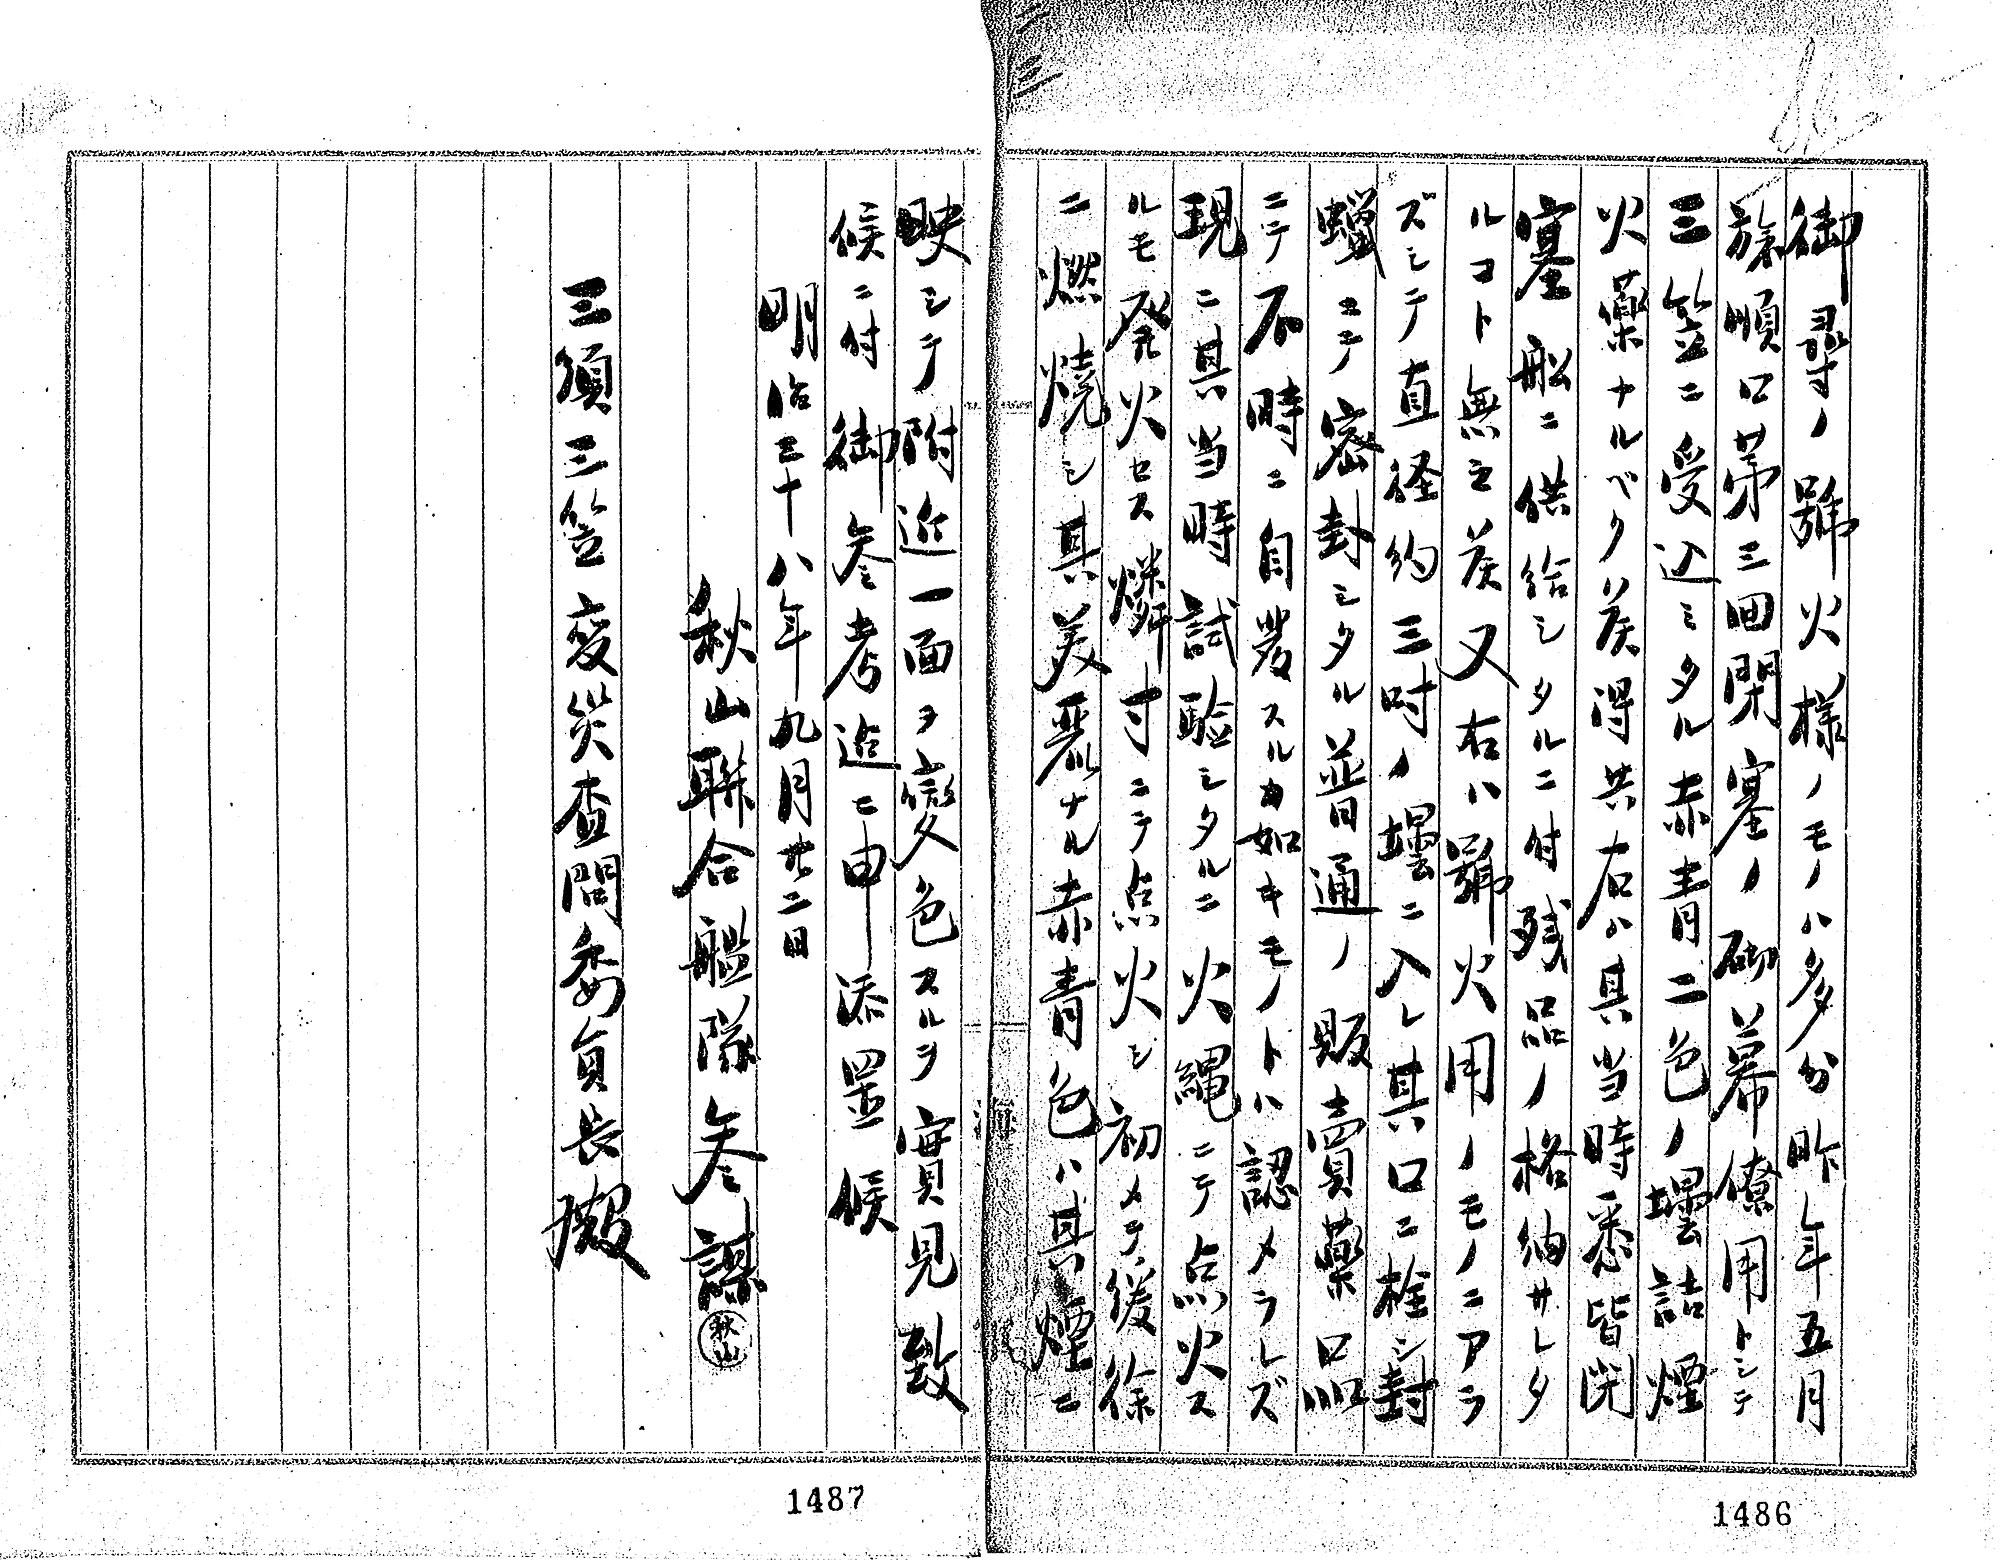 御尋ノ號火様ノモノハ多分昨年五月
旅順口第三回閉塞ノ砌幕僚用トシテ
三笠ニ受込ミタル赤青二色ノ壜詰煙
火薬ナルベク候得共右ハ其当時悉皆閉
塞船ニ供給シタルニ付残品ノ格納サレタ
ルコト無之候又右ハ號火用ノモノニアラ
ズシテ直径約三吋ノ壜ニ入レ其口ニ栓シ封
蝋ニテ密封シタル普通ノ販賣薬品
ニテ不時ニ自發スルカ如キモノトハ認メラレズ
現ニ其当時試験シタルニ火縄ニテ点火ス
ルモ発火セス燐寸ニテ点火シ初メテ緩徐
ニ燃焼シ其美麗ナル赤青色ハ其煙ニ
映シテ附近一面ヲ變色スルヲ實見致
候ニ付御参考迄ニ申添置候
明治三十八年九月廿二日
秋山聯合艦隊参謀
秋山
三須三笠変災査問委員長殿
1487
1486